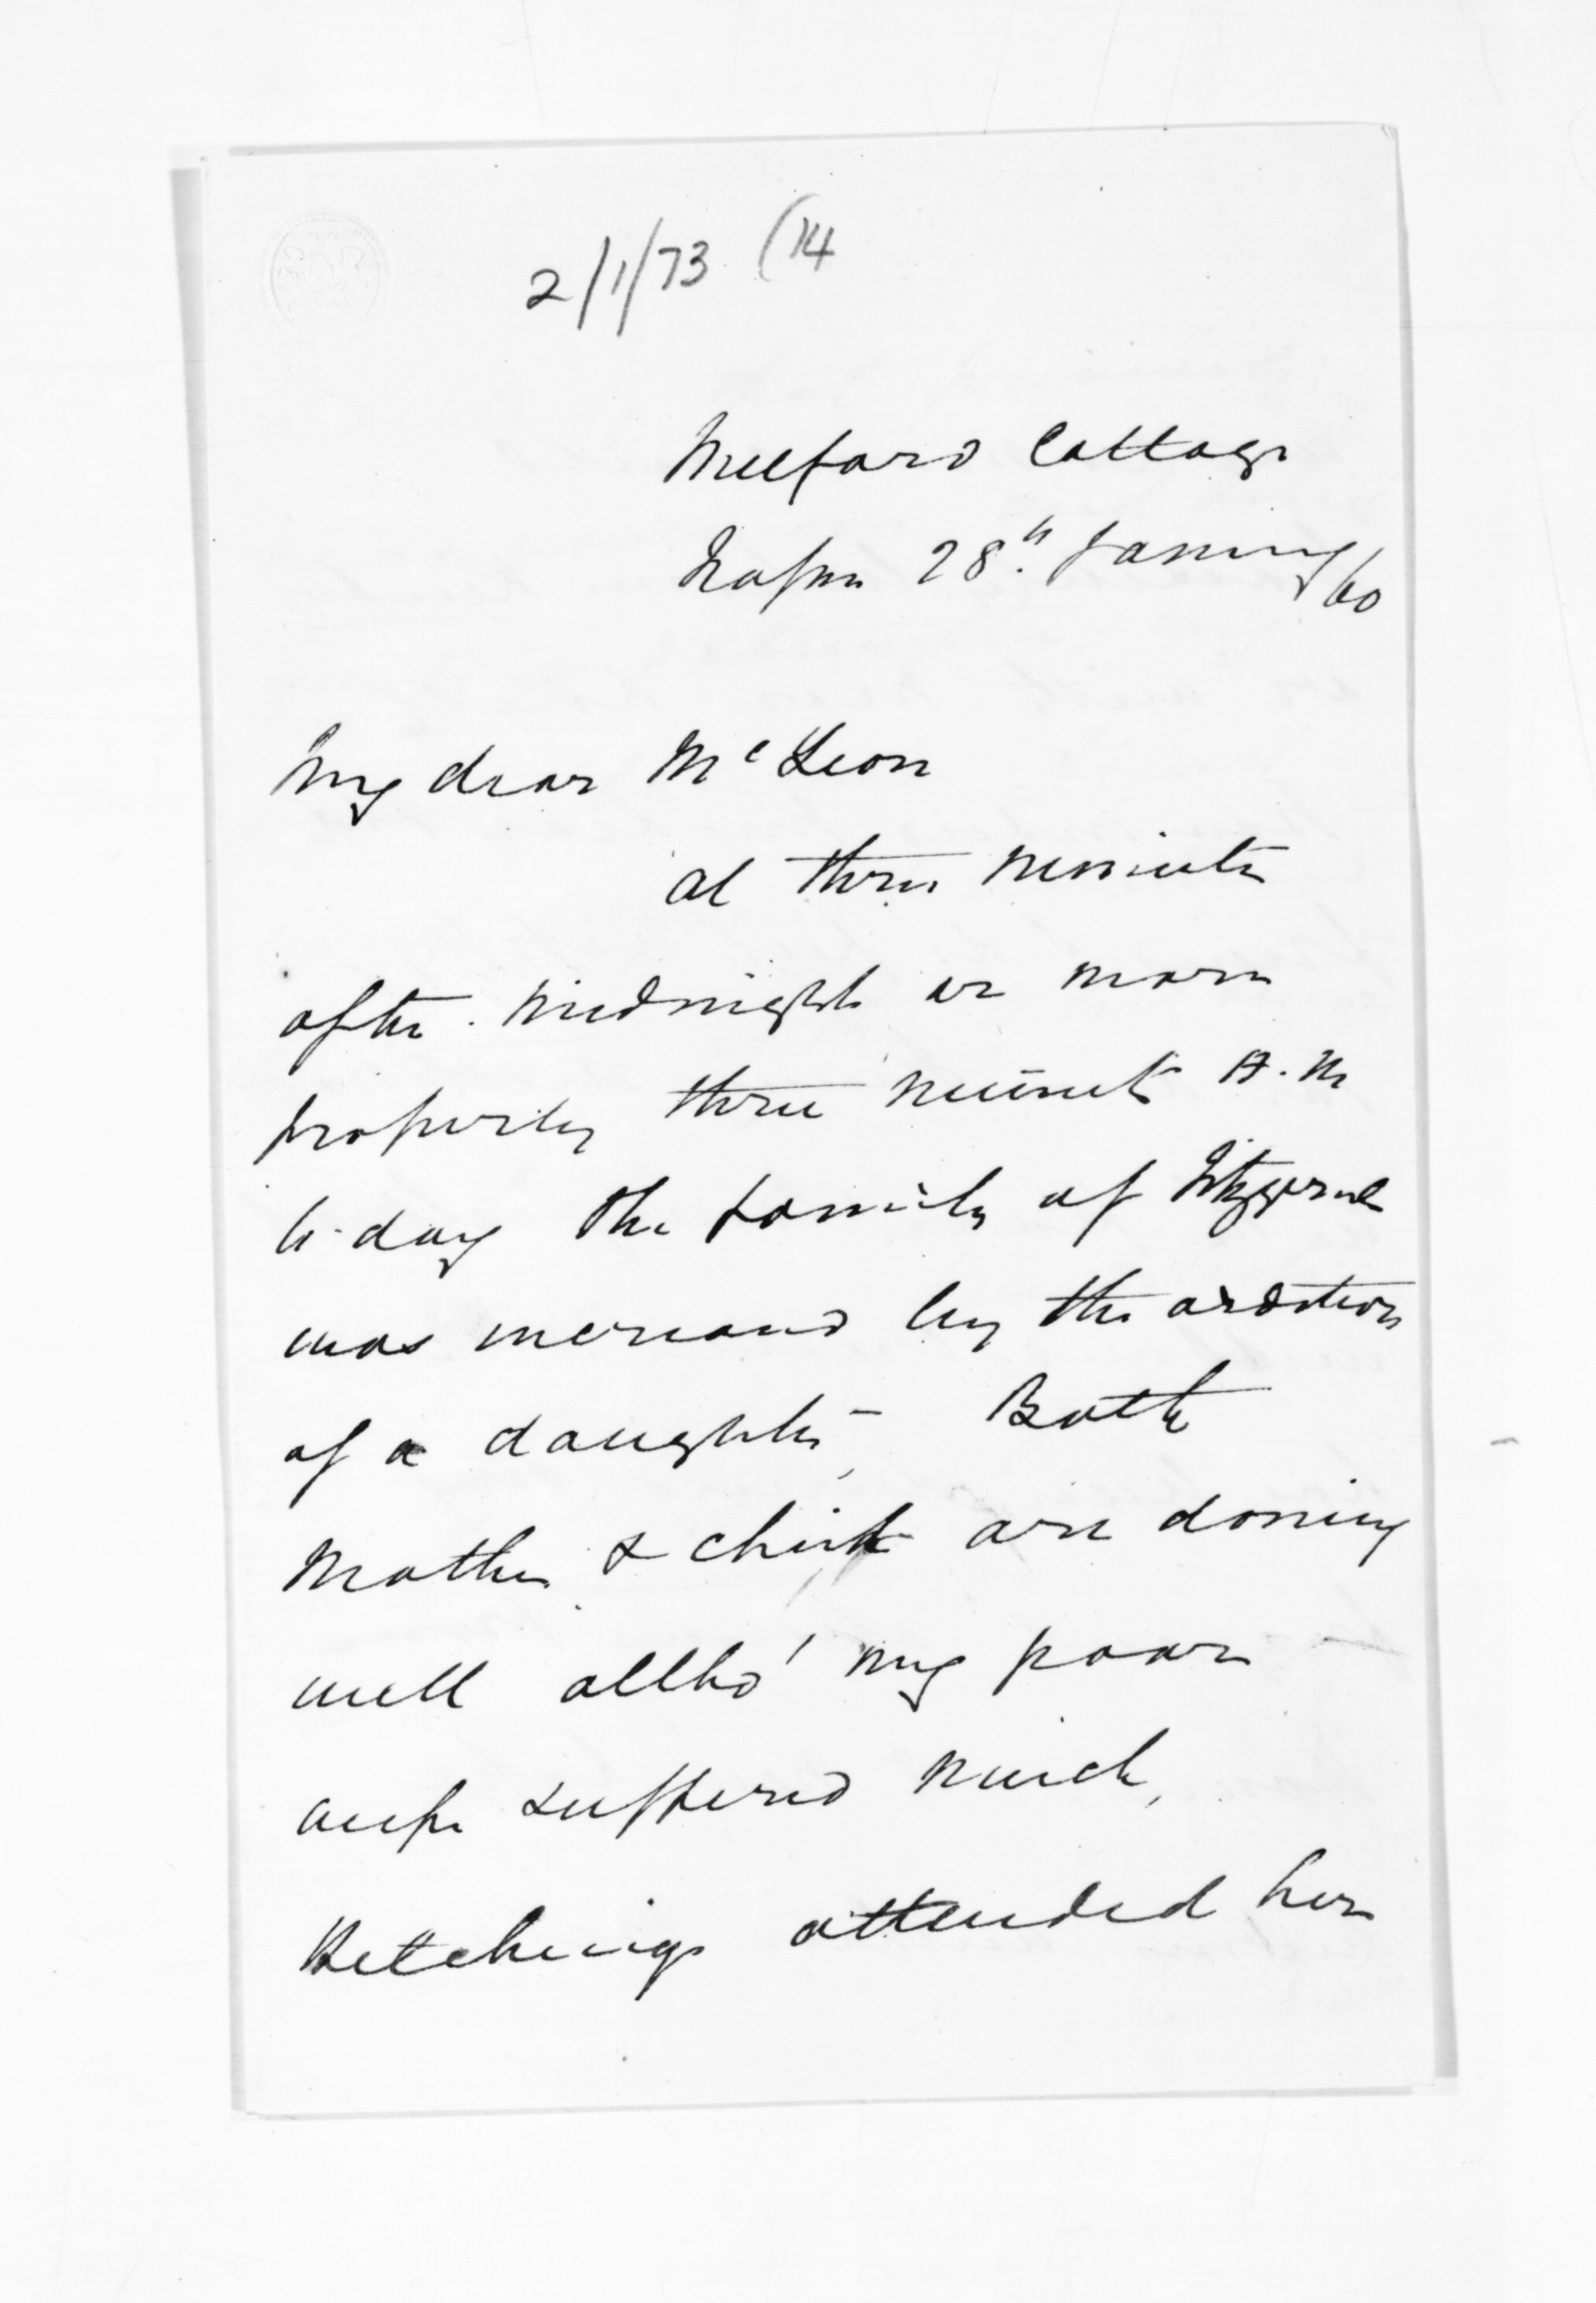 2/1/73 (14
Milford Cottage
Napier 28th January/60
My dear McLean
at three minutes
after midnight or more
properly three minutes A.M
to-day the family of Fitzgerald
was increased by the addition
of a daughter, Both
Mother & child are doing
well altho' my poor
wife suffered much,
Hitchings attended her